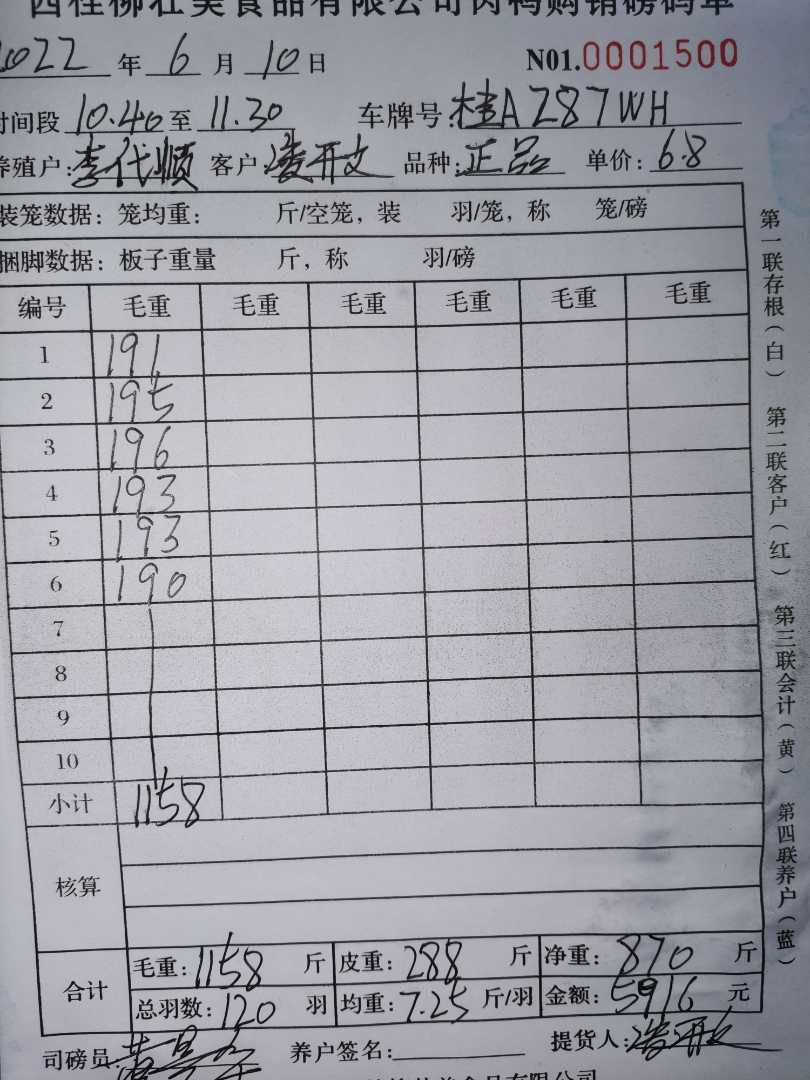 西桂柳壮美食品有限公司肉鸭购销磅码单
2022 年 6 月 10 日 N01.0001500
时间段 10.40 至 11.30 车牌号: 桂A Z87WH
养殖户: 李代顺 客户: 凌开文 品种: 正品 单价: 6.8
装笼数据: 笼均重: 斤/空笼, 装 羽/笼, 称 笼/磅
捆脚数据: 板子重量 斤, 称 羽/磅
编号 毛重 毛重 毛重 毛重 毛重 毛重
1 191
2 195
3 196
4 193
5 193
6 190
7
8
9
10
小计 1158
核算
合计 毛重: 1158 斤 皮重: 288 斤 净重: 870 斤
总羽数: 120 羽 均重: 7.25 斤/羽 金额: 5916 元
司磅员: 养户签名: 提货人: 凌开文
食品有限公司
第一联存根(白) 第二联客户(红) 第三联会计(黄) 第四联养户(蓝)